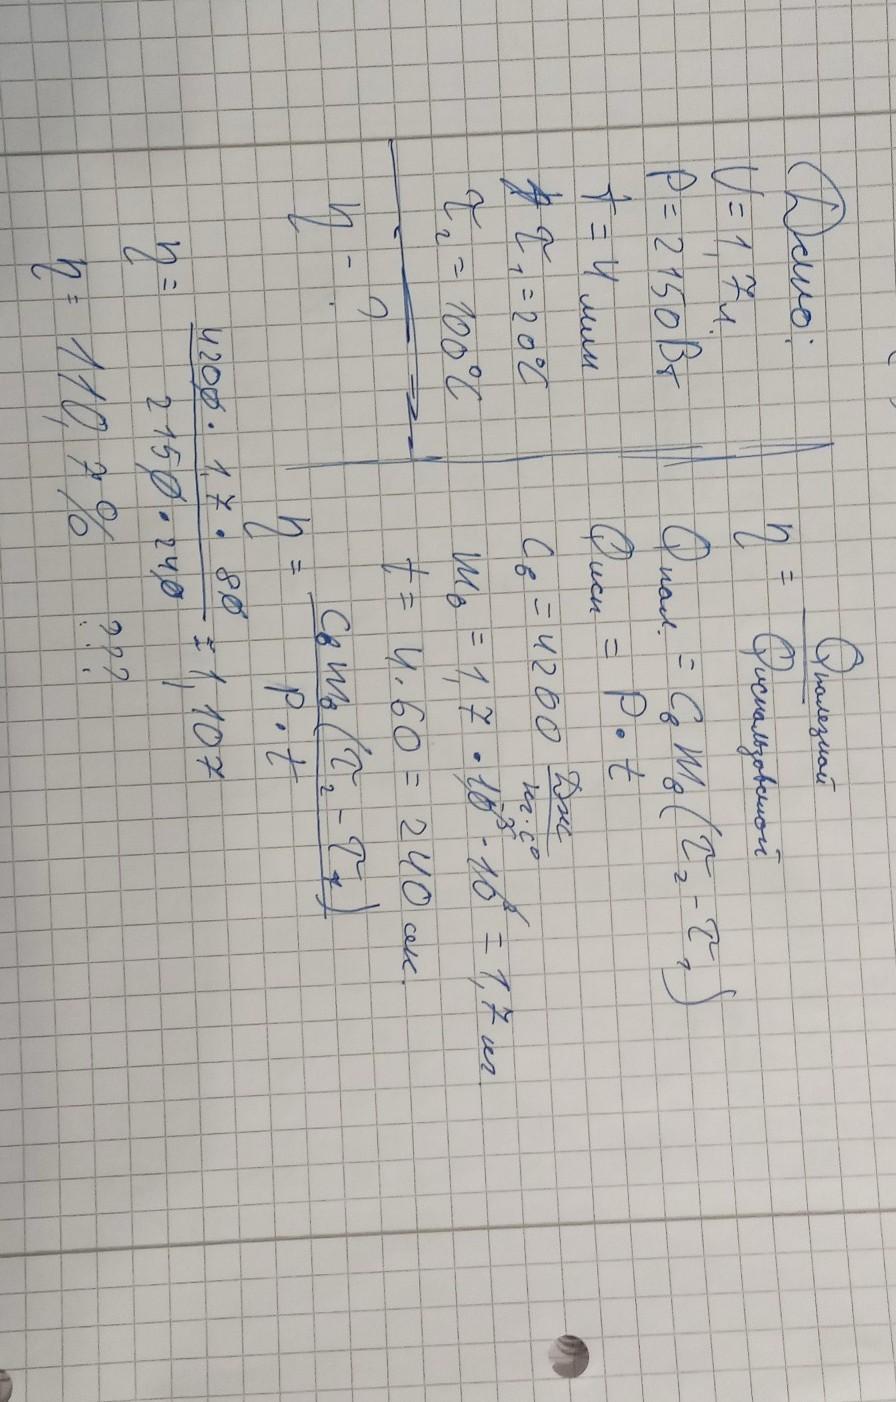 Дано:
V = 1,7 л.
P = 2150 Вт
t = 4 мин
τ₁ = 20°C
τ₂ = 100°C
η - ?
η = Qполезной / Qиспользованной
Qпол. = Cв mв (τ₂ - τ₁)
Qисп = P · t
Cв = 4200 Дж / кг · C°
mв = 1,7 · 10⁻³ · 10³ = 1,7 кг
t = 4 · 60 = 240 сек.
η = Cв mв (τ₂ - τ₁) / P · t
η = 4200 · 1,7 · 80 / 2150 · 240 = 1,107
η = 110,7 % ???